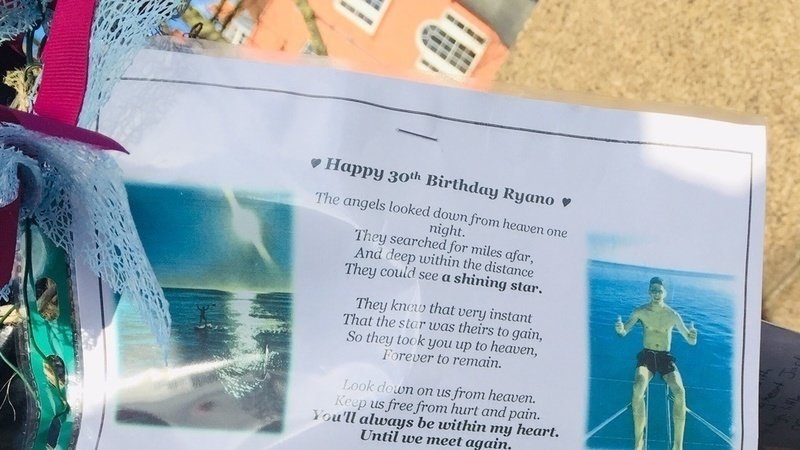 ♥ Happy 30th Birthday Ryano ♥
The angels looked down from heaven one
night.
They searched for miles afar,
And deep within the distance
They could see a shining star.
They knew that very instant
That the star was theirs to gain,
So they took you up to heaven,
Forever to remain.
Look down on us from heaven.
Keep us free from hurt and pain.
You'll always be within my heart.
Until we meet again.